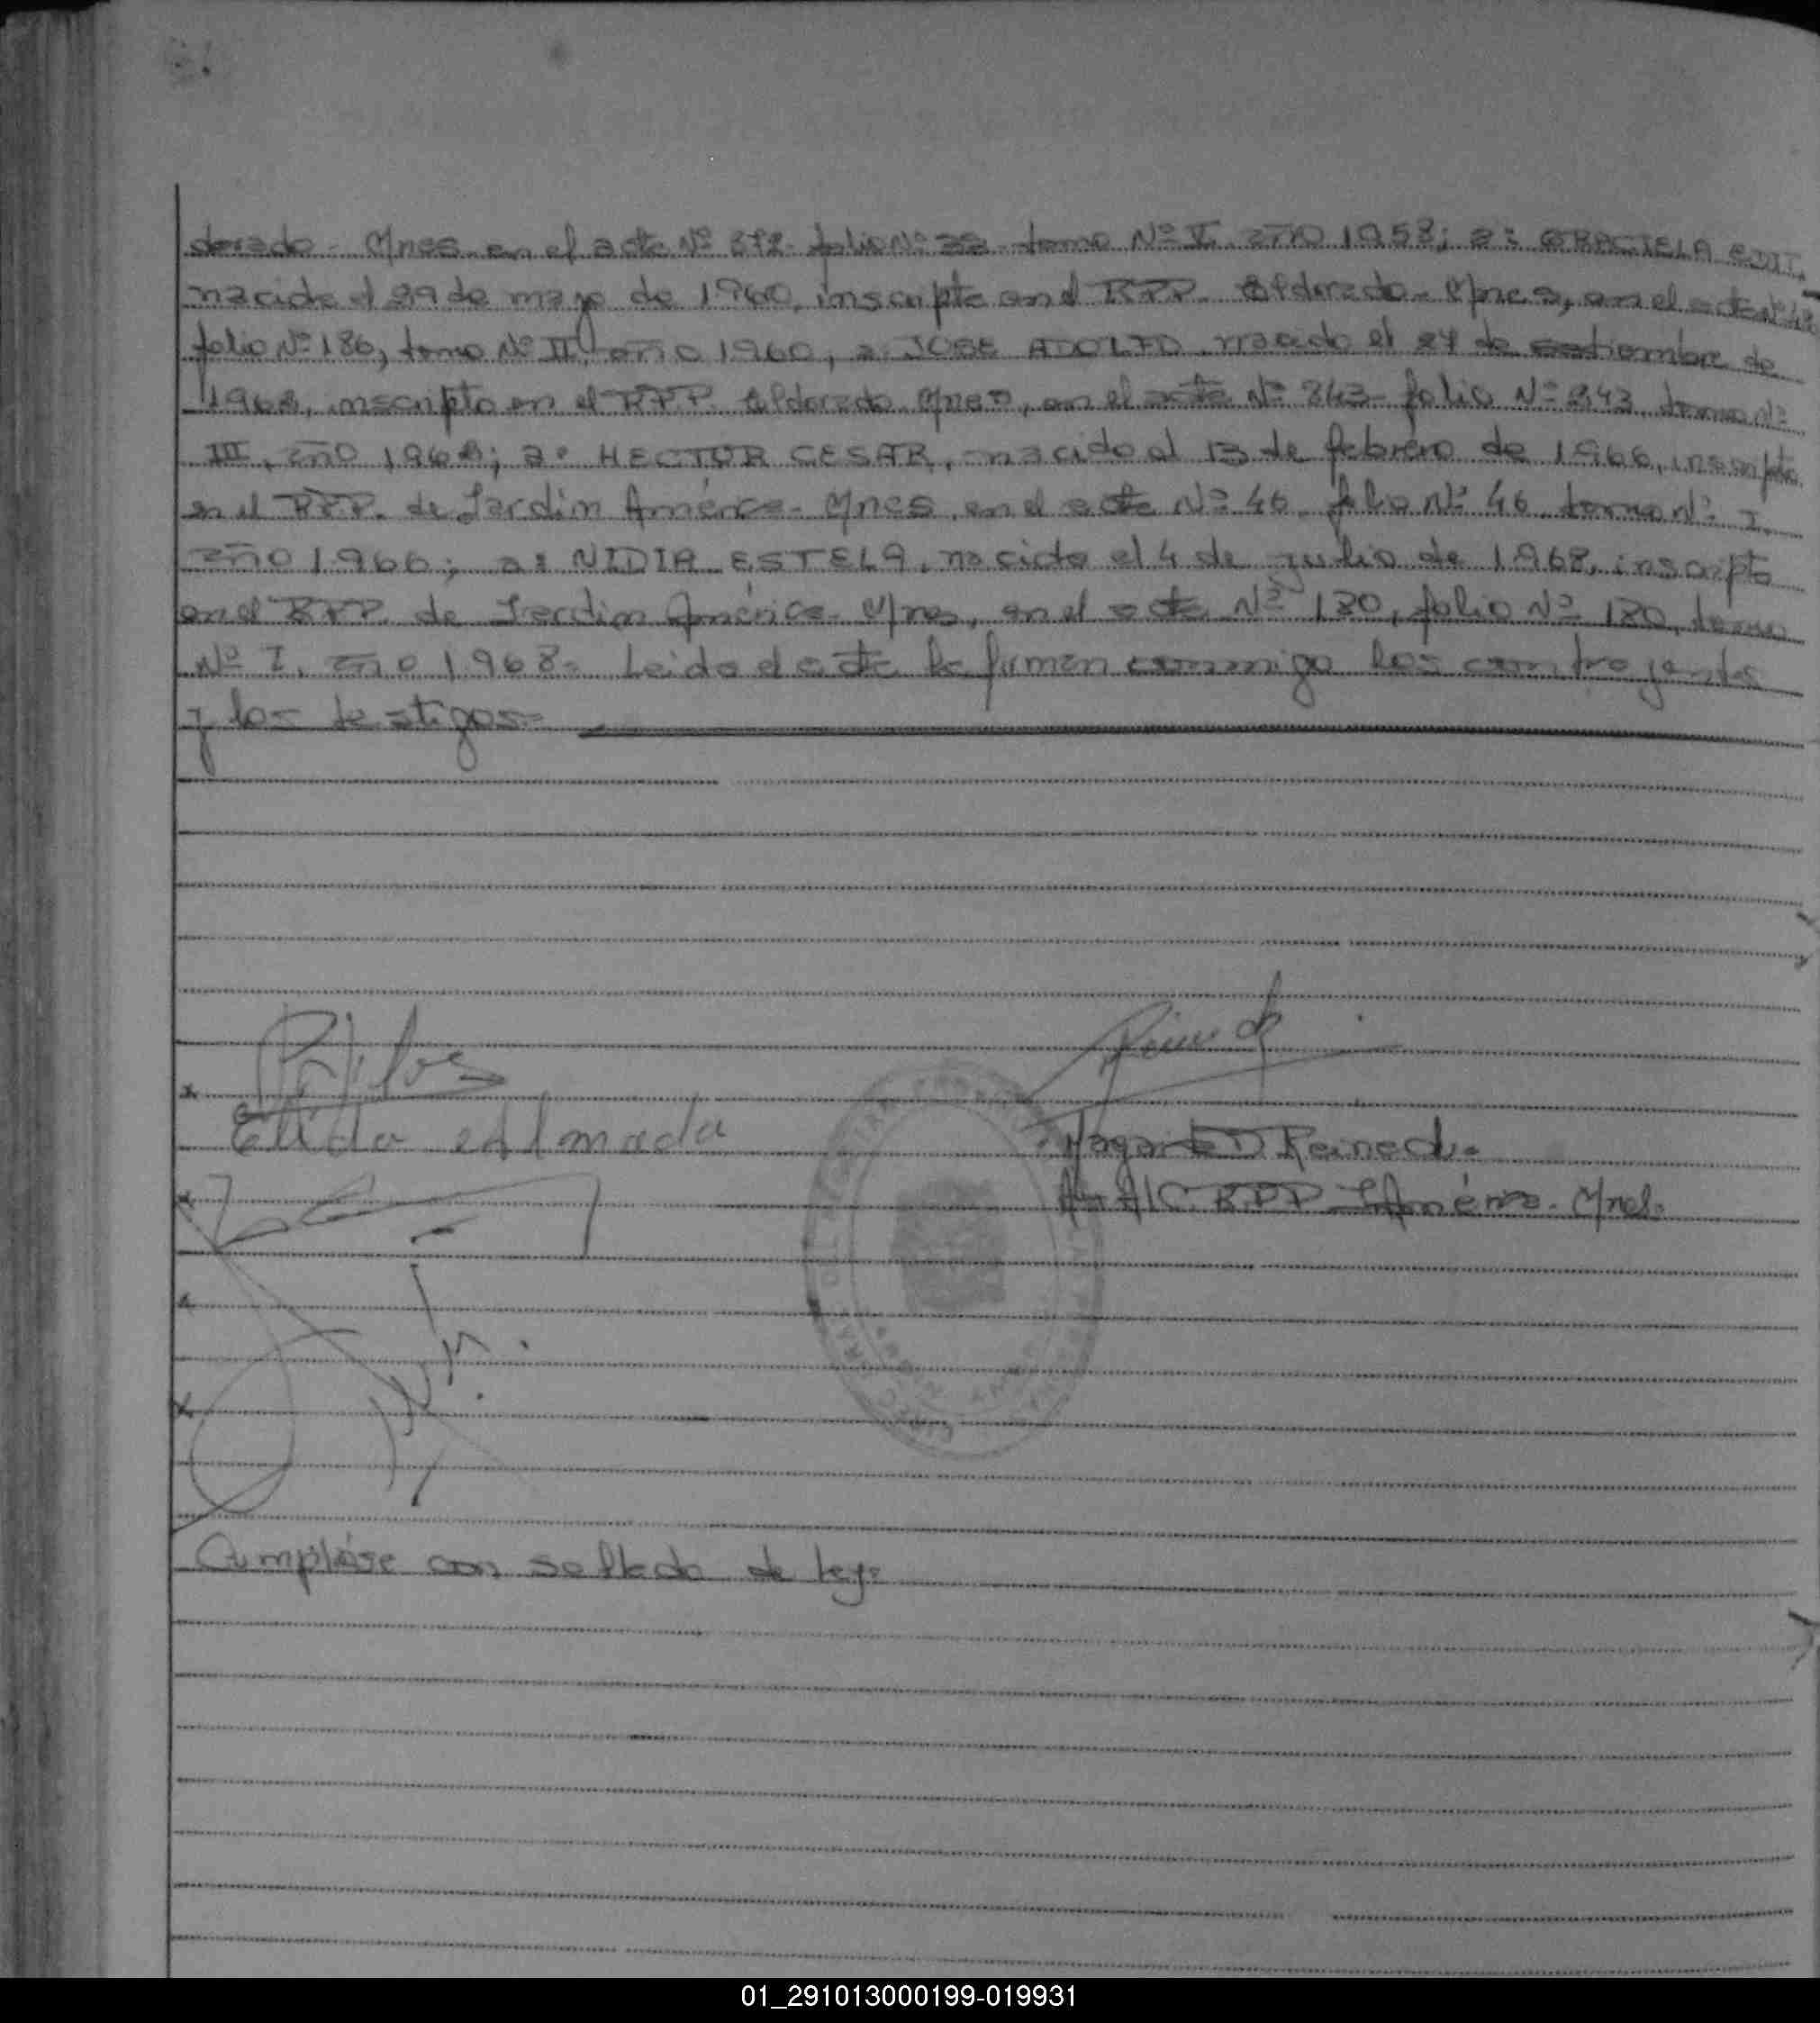 dorado - Mnes. en el acta Nº 372 - folio Nº 32 - tomo Nº V. año 1958; a: GRACIELA EDIT,
nacida el 29 de mayo de 1960, inscripta en el RPP. Eldorado - Mnes, en el acta Nº
folio Nº 186, tomo Nº II, año 1960, a JOSE ADOLFO nacido el 24 de setiembre de
196, inscripto en el RPP. Eldorado Mnes, en el acta Nº 343 - folio Nº 343, tomo Nº
III, año 196; a: HECTOR CESAR, nacido el 13 de febrero de 1966, inscripto
en el RPP. de Jardin América - Mnes, en el acta Nº 46, folio Nº 46, tomo Nº I.
año 1966; a: NIDIA ESTELA, nacida el 4 de julio de 1968, inscripta
en el RPP. de Jardin América - Mnes, en el acta Nº 180, folio Nº 180, tomo
Nº I, año 1968= Leida el acta la firman conmigo los contrayentes
y los testigos=
Elida
Reineck
RPP J América - Mnes.
Cumpláse con sellado de ley=
01_291013000199-019931